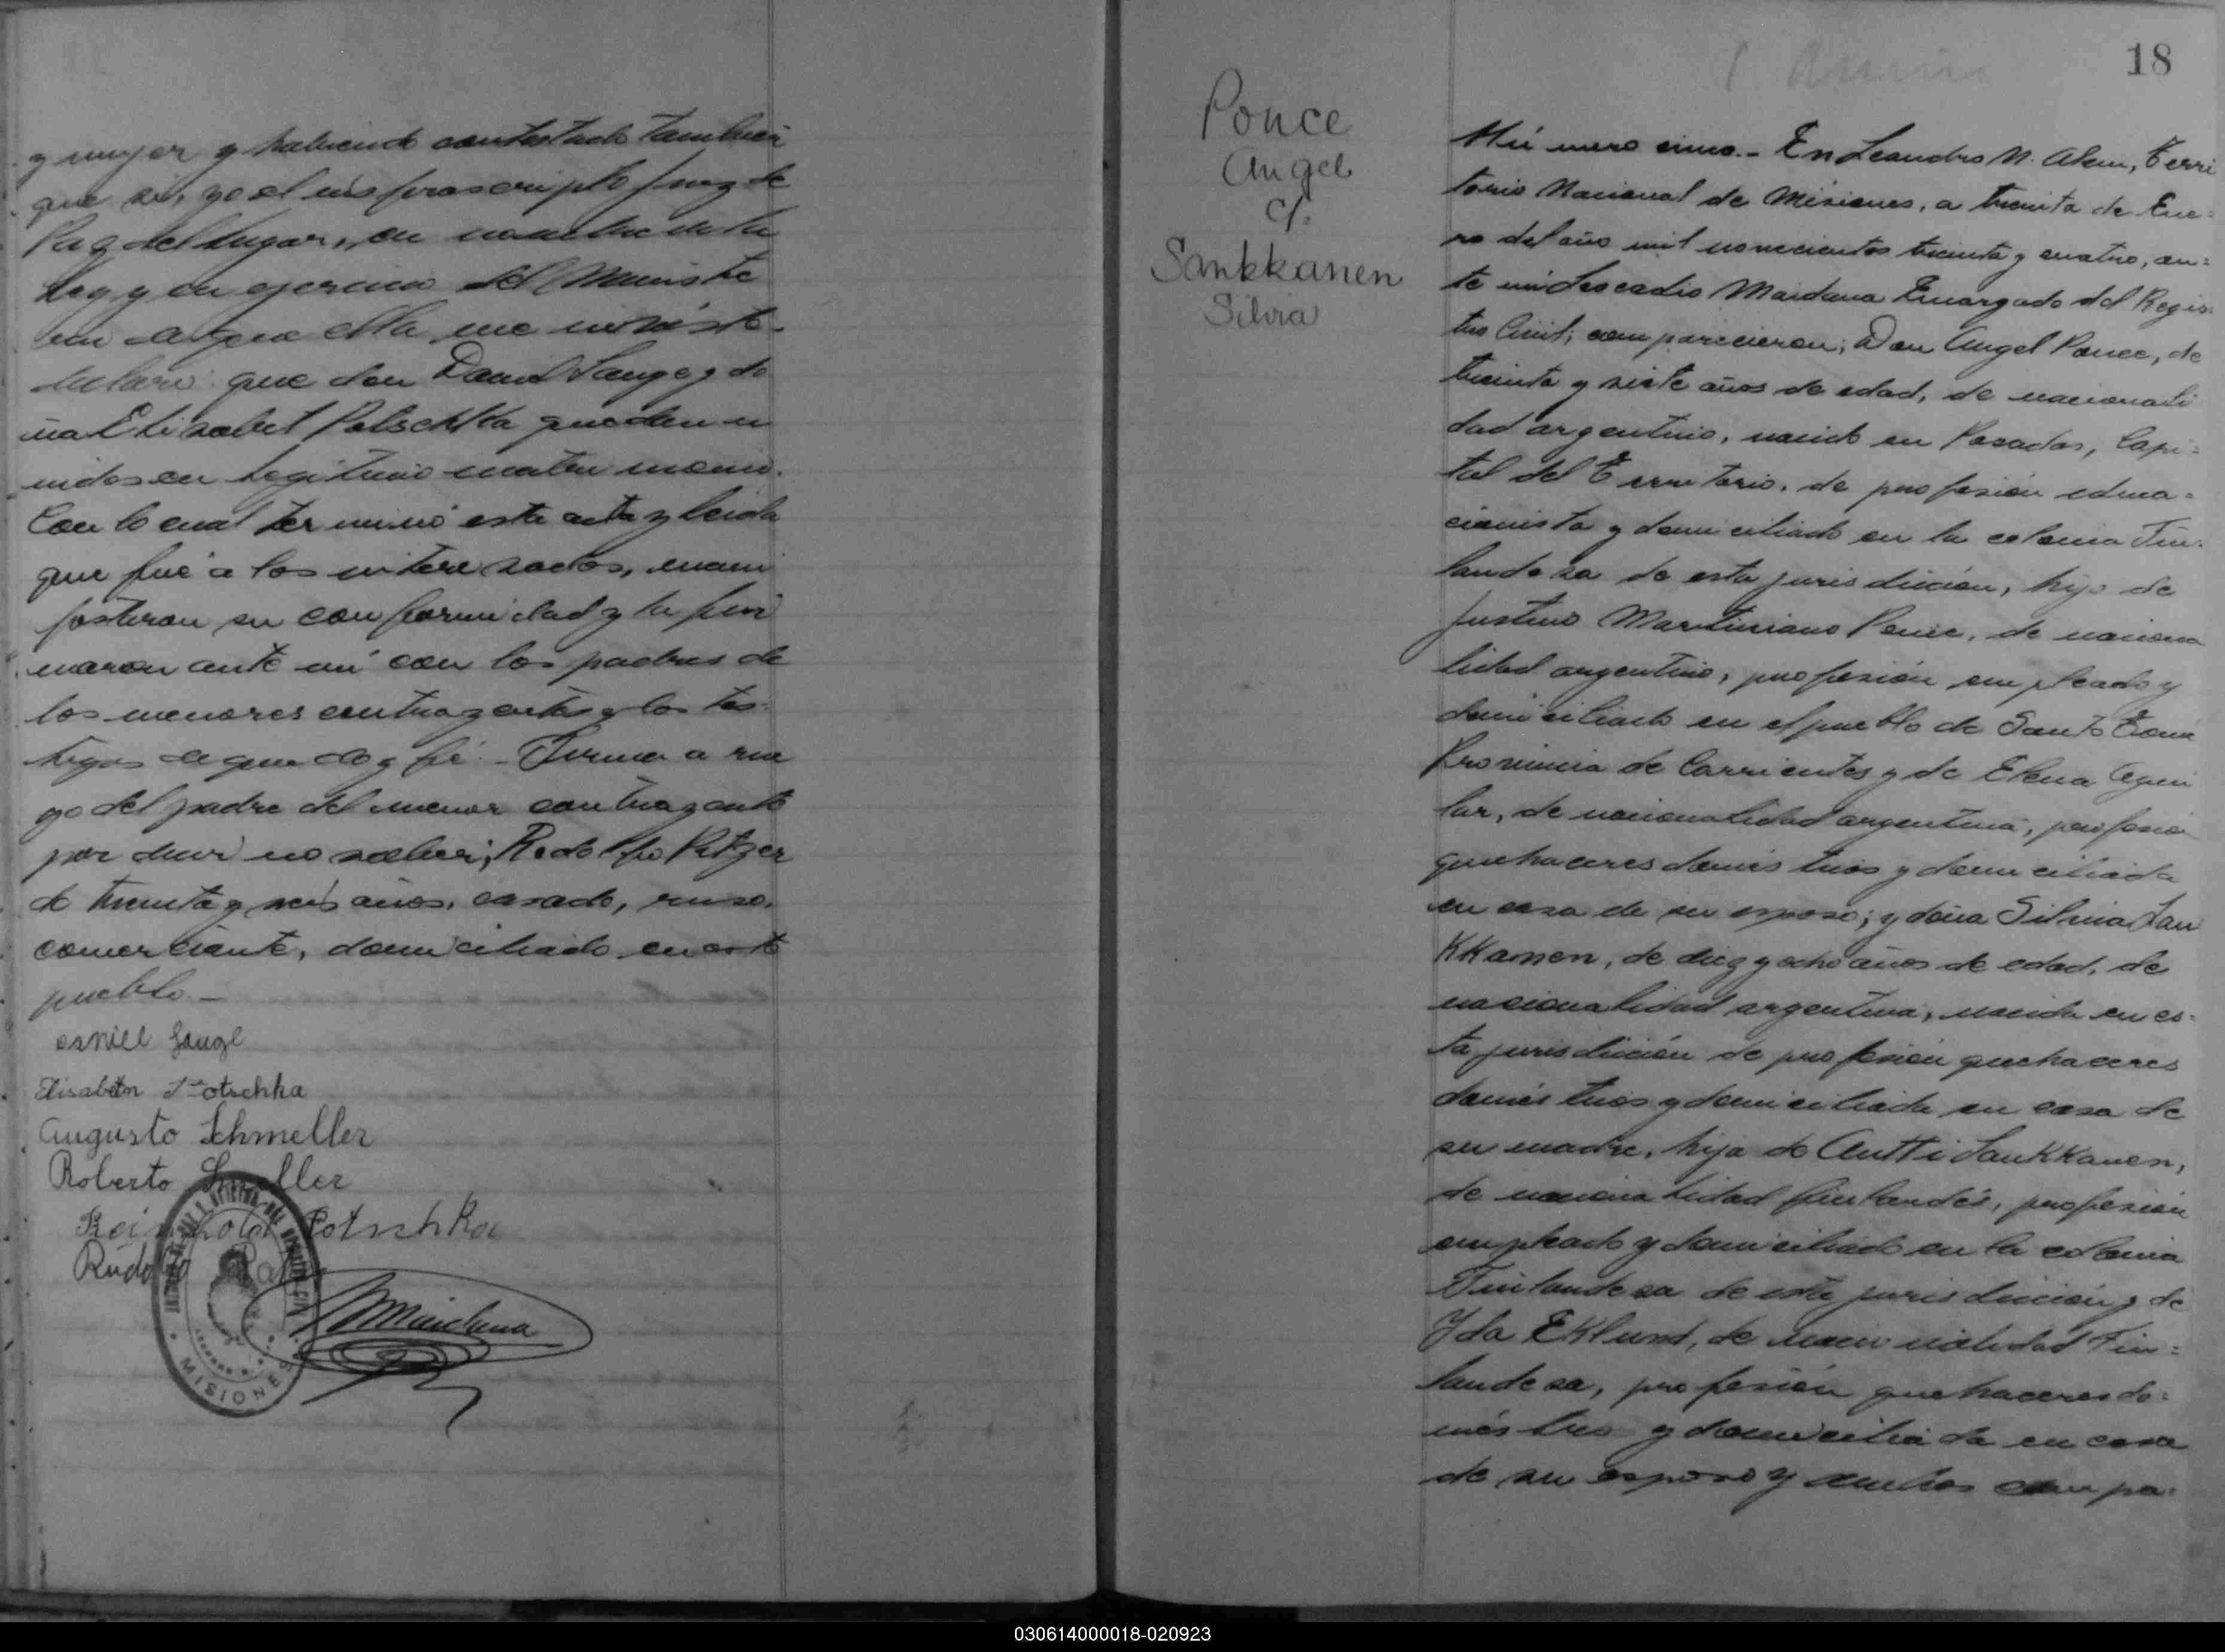 y mujer y habiendo contestado tambien
que si, yo el infrascripto Juez de
Paz del lugar, en nombre de la
Ley y en ejercicio del Ministe
en que ella me
declaro: que don Daniel Lange y do
ña Elisabet Potschka quedan u
nidos en legitimo matri monio.
Con lo cual ter minó esta acta y leida
que fué a los intere sados, mani
festaron su conformidad y la fir
maron ante mi con los padres de
los menores contrayentes y los tes-
tigos de que doy fé. - Firma a rue
go del padre del menor contrayente
por decir no saber; Rodolfo Ritzer
de treinta y seis años, casado, ruso,
comerciante, domiciliado en este
pueblo -
Lange
Elisabetn Potschka
Augusto Schmeller
Roberto
Reinhold Potschka
Rudolfo
Maidana
MISIONES
18
Ponce
Angel
c/.
Sankkanen
Silvia
Nú mero cinco. - En Leandro N. Alem, Terri
torio Nacional de Misiones, a treinta de Ene=
ro del año mil novecientos treinta y cuatro, an=
te mi Leocadio Maidana Encargado del Regis-
tro Civil; comparecieron; Don Angel Ponce, de
treinta y siete años de edad, de nacionali
dad argentino, nacido en Posadas, Capi=
tal del Territorio, de profesión educa=
cionista y domiciliado en la colonia Fin-
landesa de esta jurisdicción, hijo de
Justino Martiniano Ponce, de naciona
lidad argentino, profesión empleado y
domiciliado en el pueblo de Santo Tomé
Provincia de Corrientes y de Elena Agui
lar, de nacionalidad argentina, profesión
quehaceres domésticos y domiciliada
en casa de su esposo; y doña Silvia San
KKanen, de diez y ocho años de edad, de
nacionalidad argentina, nacida en es=
ta jurisdicción de profesión quehaceres
domésticos y domiciliada en casa de
su madre, hija de Antti SanKKanen,
de nacionalidad finlandés, profesión
empleado y domiciliado en la colonia
Finlandesa de esta jurisdicción y de
Yda EKlund, de nacionalidad Fin=
landesa, profesión quehaceres do=
mésticos y domiciliada en casa
de su esposo y ambos compa=
030614000018-020923